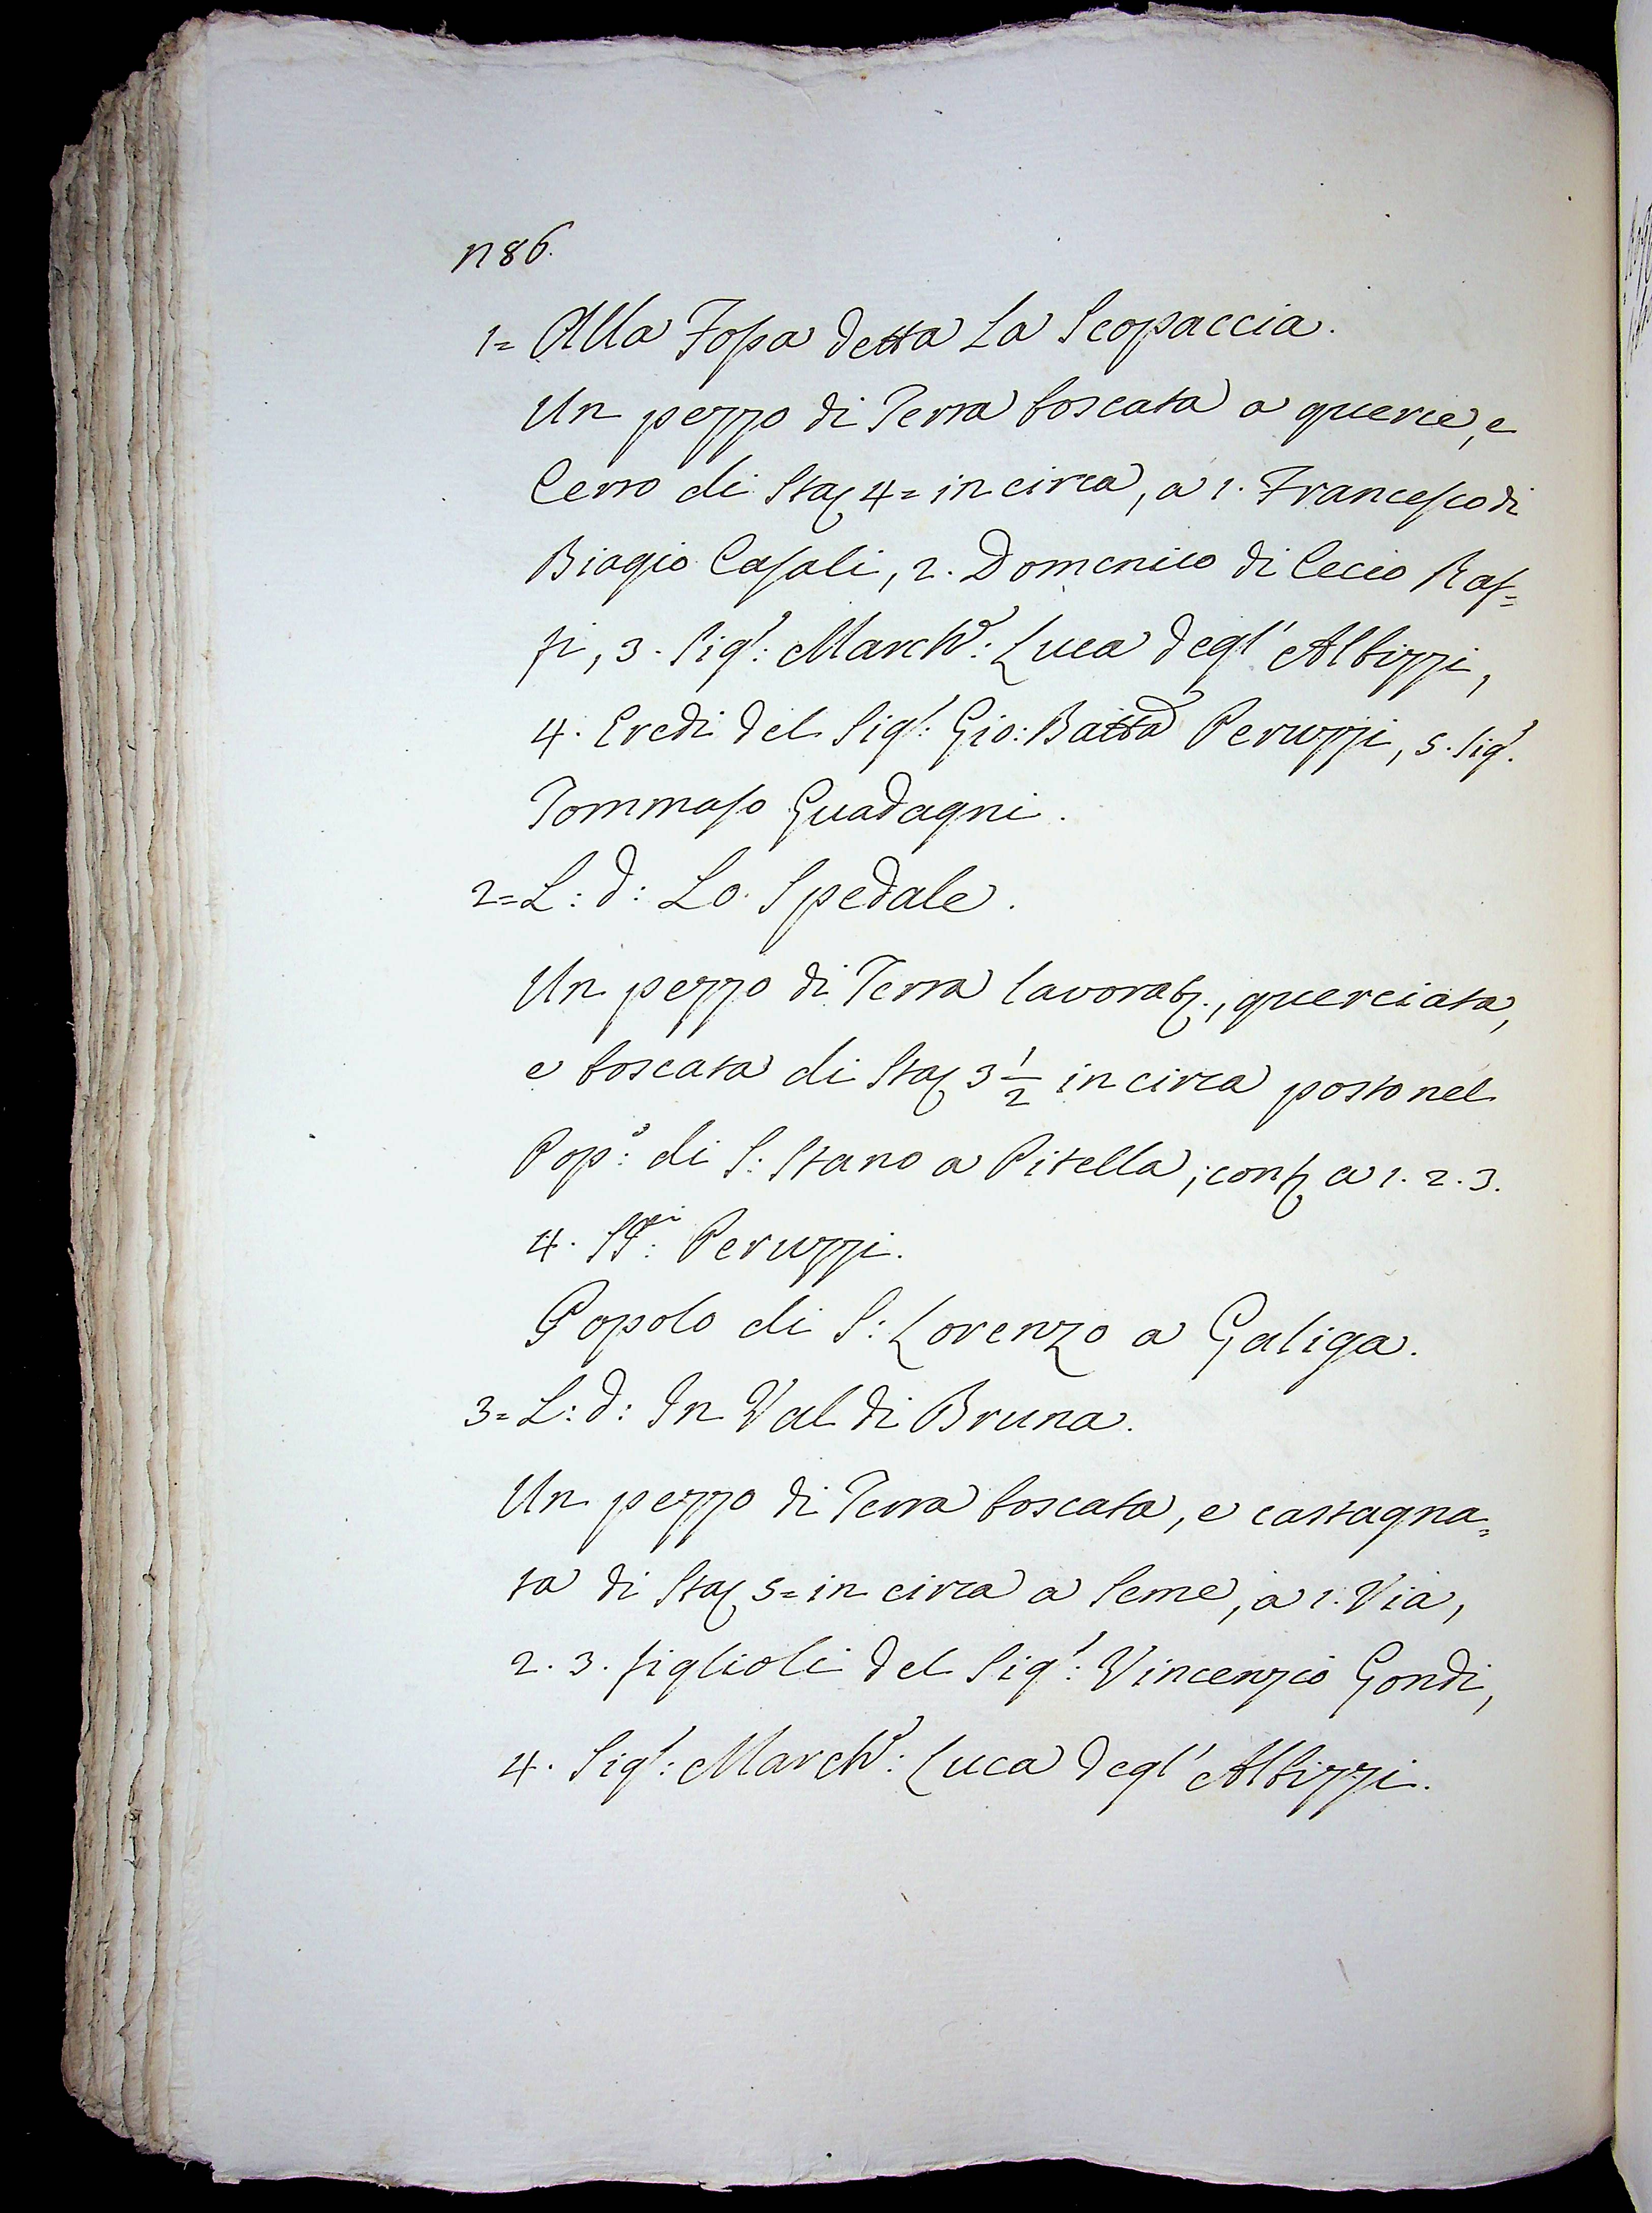 n 86.
1= Alla Fossa detta La Scopaccia.
Un pezzo di Terra boscata a querce, e
Cerro di Sta 4= in circa, a 1. Francesco di
Biagio Casali, 2. Domenico di Cecco Raf=
fi, 3. Sig.r: March.e: Luca degl' Albizzi,
4. Eredi del Sig.r: Gio: Batta Peruzzi, 5. Sig.r
Tommaso Guadagni.
2= L: d: Lo Spedale.
Un pezzo di Terra lavorat., querciata,
e boscata di Sta 3 1/2 in circa posto nel
Pop.o: di S: Stano a Pitella; conf a 1. 2. 3.
4. SS.ri: Peruzzi.
Popolo di S: Lorenzo a Galiga.
3= L: d: In Val di Bruna.
Un pezzo di Terra boscata, e castagna=
ta di Sta 5= in circa a Seme, a 1. Via,
2. 3. figlioli del Sig.r: Vincenzio Gondi,
4. Sig.r: March.e: Luca degl' Albizzi.